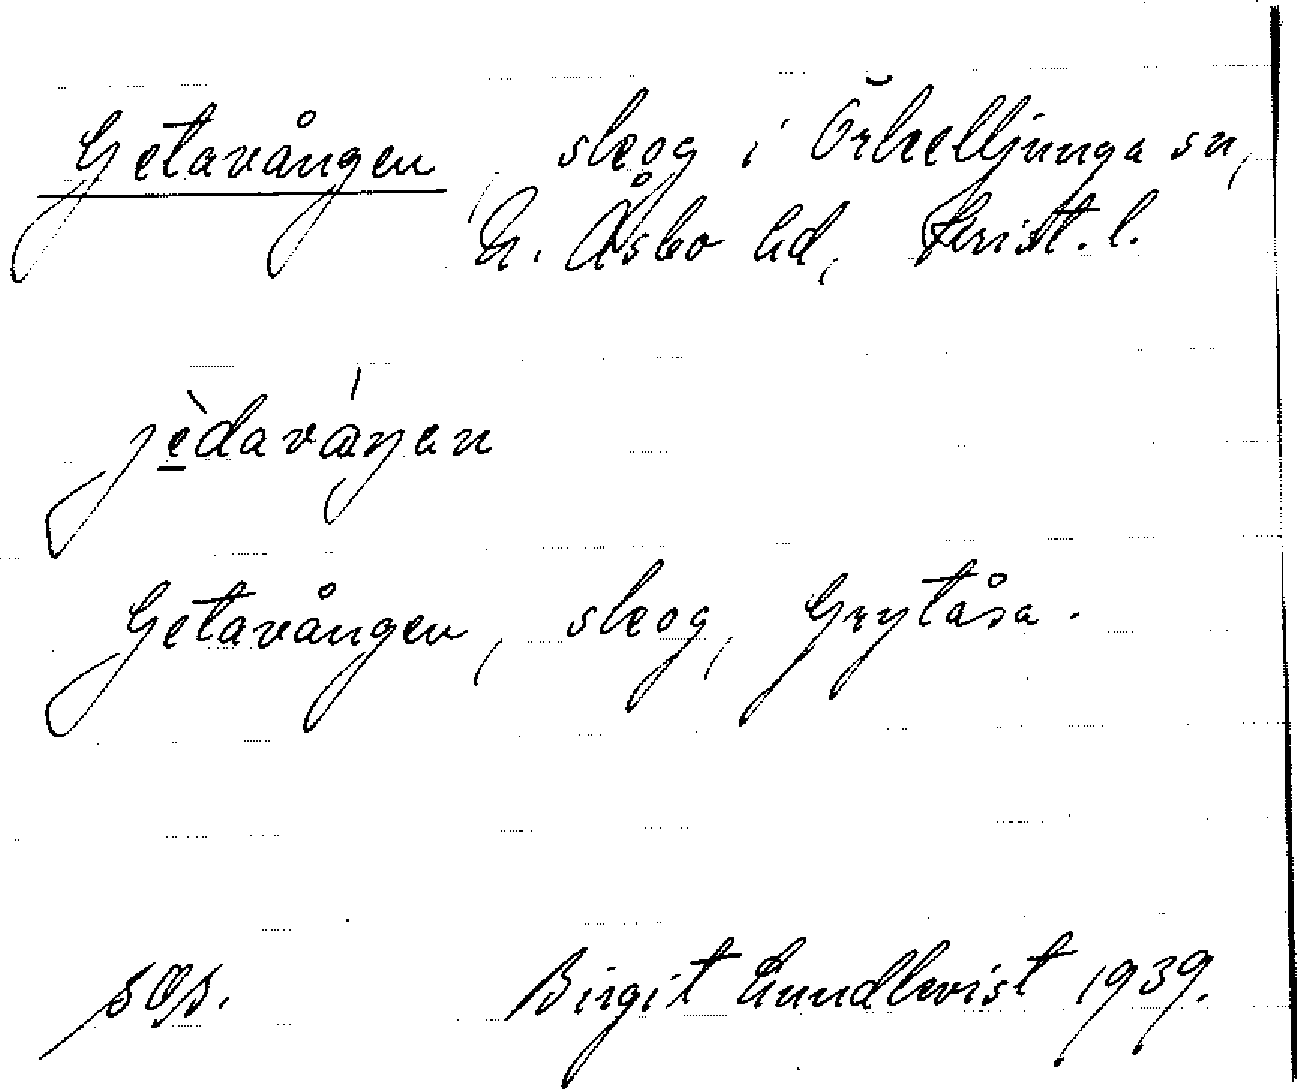 Getavången, skog i Örkelljunga sn,
N. Åsbo hd, Krist. l.
jèdaváŋen
Getavången, skog, Grytåsa.
Birgit Lundkvist 1939.